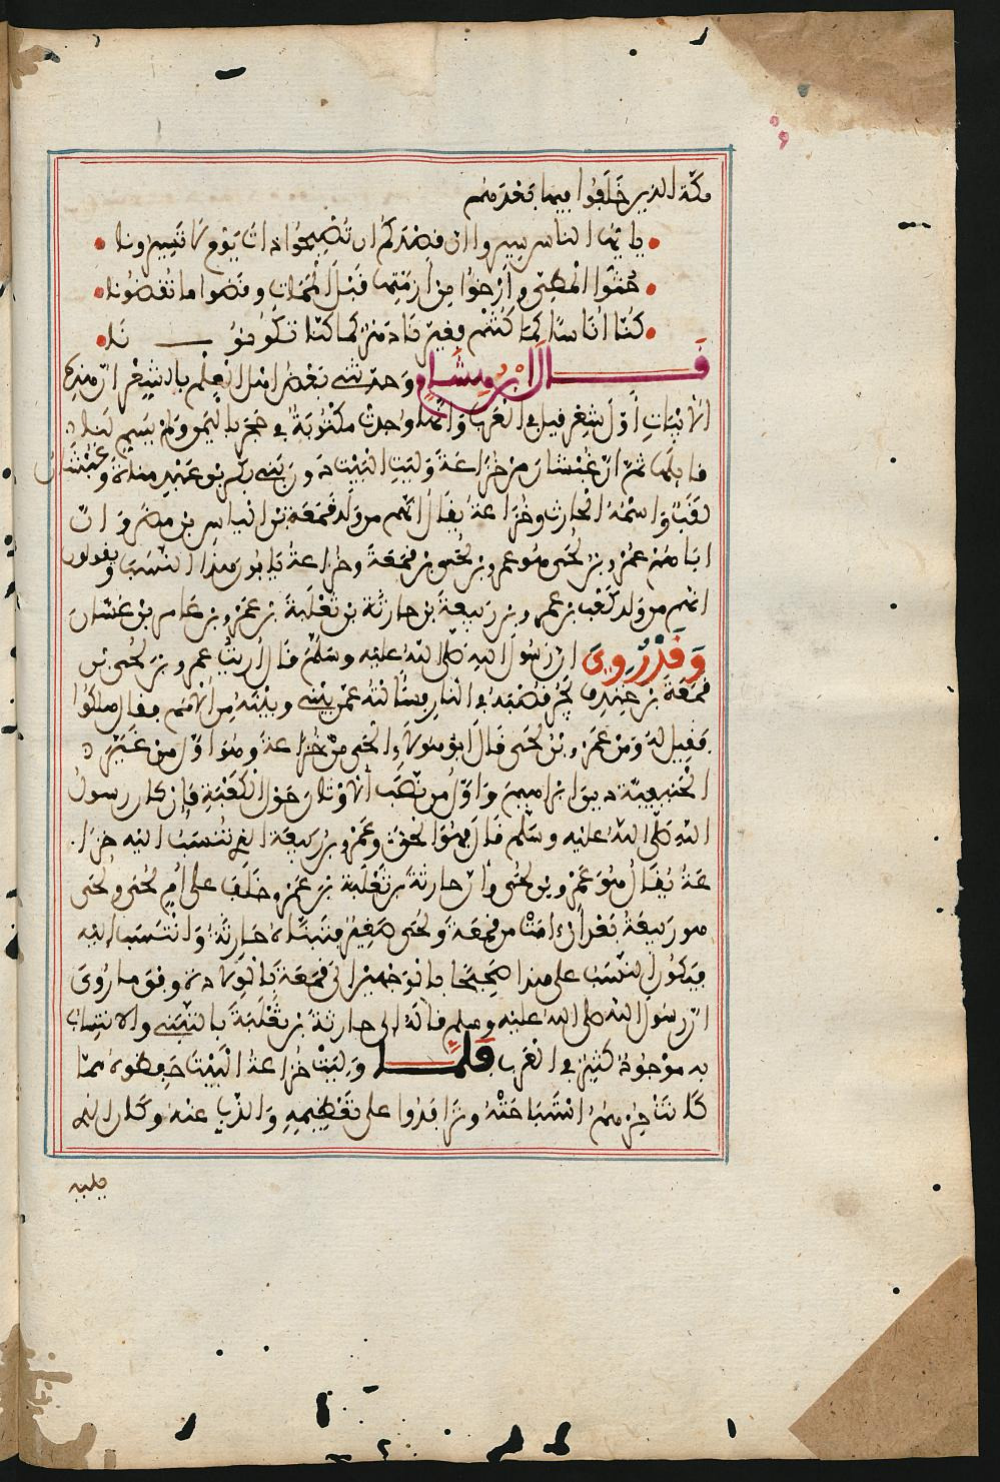 مكة الذين خلفوا فيها بعدهم
يا يها الناس سيروا ان قصدكم ان تصبحوا ذات يوم لا تسيرونا
حثوا المطي وأرخوا من أزمتها قبل الممات وقضوا ما تقضونا
كنا اناسا كما كنتم فغيرنا دهر كما كنا تكونونا
قال ابن هشام وحدثني بعض اهل العلم بالشعر ان هذه
الأبيات أول شعر قيل في العرب وأنها وجدت مكتوبة في حجر باليمن ولم يسم لنا
قائلها ثم ان غبشان من خزاعة وليت البيت دون بني بكر بن عبد مناة وغبشان
لقب واسمه الحارث وخزاعة يقال انهم من ولد قمعة بن الياس بن مضر وان
اباهم عمرو بن لحي هو عمرو بن لحي بن قمعة وخزاعة يأبون هذا النسب ويقولون
انهم من ولد كعب بن عمرو بن ربيعة بن حارثة بن ثعلبة بن عمرو بن عامر بن غسان
وقد روي ان رسول الله صلى الله عليه وسلم قال أريت عمرو بن لحي بن
قمعة بن خندف يجر قصبه في النار فسألته عمن بيني وبينه من الأمم فقال هلكوا
فقيل له ومن عمرو بن لحي قال ابو هولاء الحي من خزاعة وهو اول من غير
الحنيفية دين ابراهيم وأول من نصب الأوثان حول الكعبة فإن كان رسول
الله صلى الله عليه وسلم قال فهو الحق وعمرو بن ربيعة الذي تنسب اليه خزا
عة يقال هو عمرو بن لحي وان حارثة بن ثعلبة بن عمرو خلف على أم لحي ولحي
هو ربيعة بعد أن امت من قمعة ولحي صغير فتبناه حارثة وانتسب اليه
فيكون النسب على هذا صحيحا بالوجهين الى قمعة بالولادة وفق ما روي
ان رسول الله صلى الله عليه وسلم قاله الى حارثة بن ثعلبة بالتبني والانتساب
به موجود كثير في العرب فلما وليت خزاعة البيت حفظوه مما
كانت جرهم استباحته وترافدوا على تعظيمه والذب عنه وكان الذي
يليه